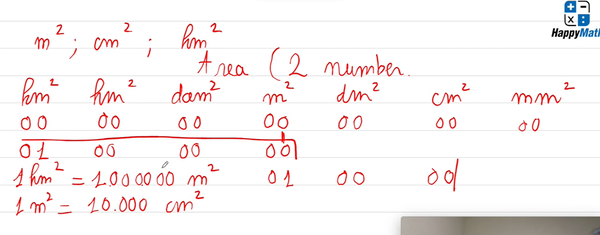 HappyMath
m² ; cm² ; hm²
Area (2 number.
km² hm² dam² m² dm² cm² mm²
00 00 00 00 00 00 00
01 00 00 00
1 km² = 1.000000 m² 01 00 00
1 m² = 10.000 cm²